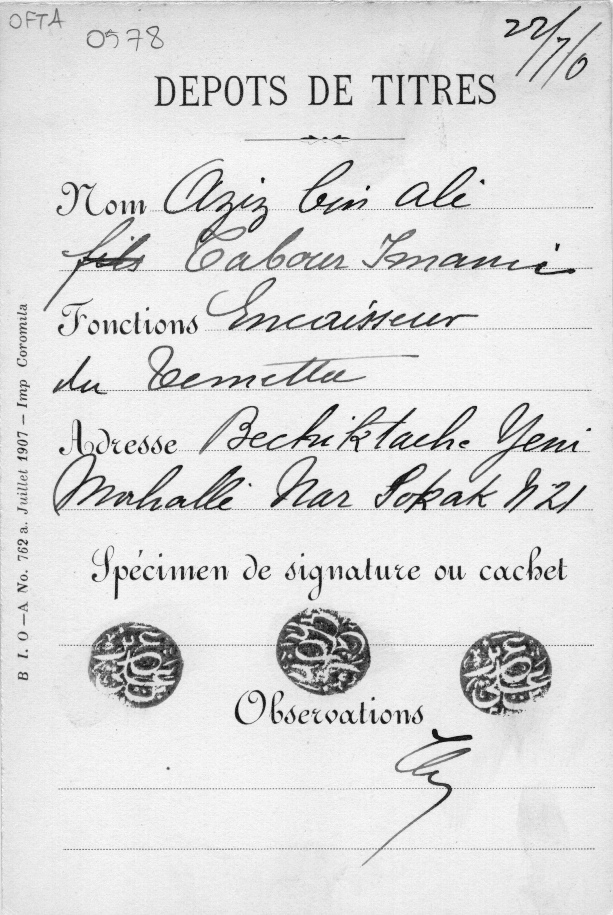 OFTA
0578
22/7/0
DEPOTS DE TITRES
Nom Aziz bin Ali
fils Tabour Imami
Fonctions Encaisseur
du Temettu
Adresse Bechiktache Yeni
Mahallé Nar Sokak N 21
Spécimen de signature ou cachet
Observations
B I. O – A No. 762 a. Juillet 1907 – Imp Coromila